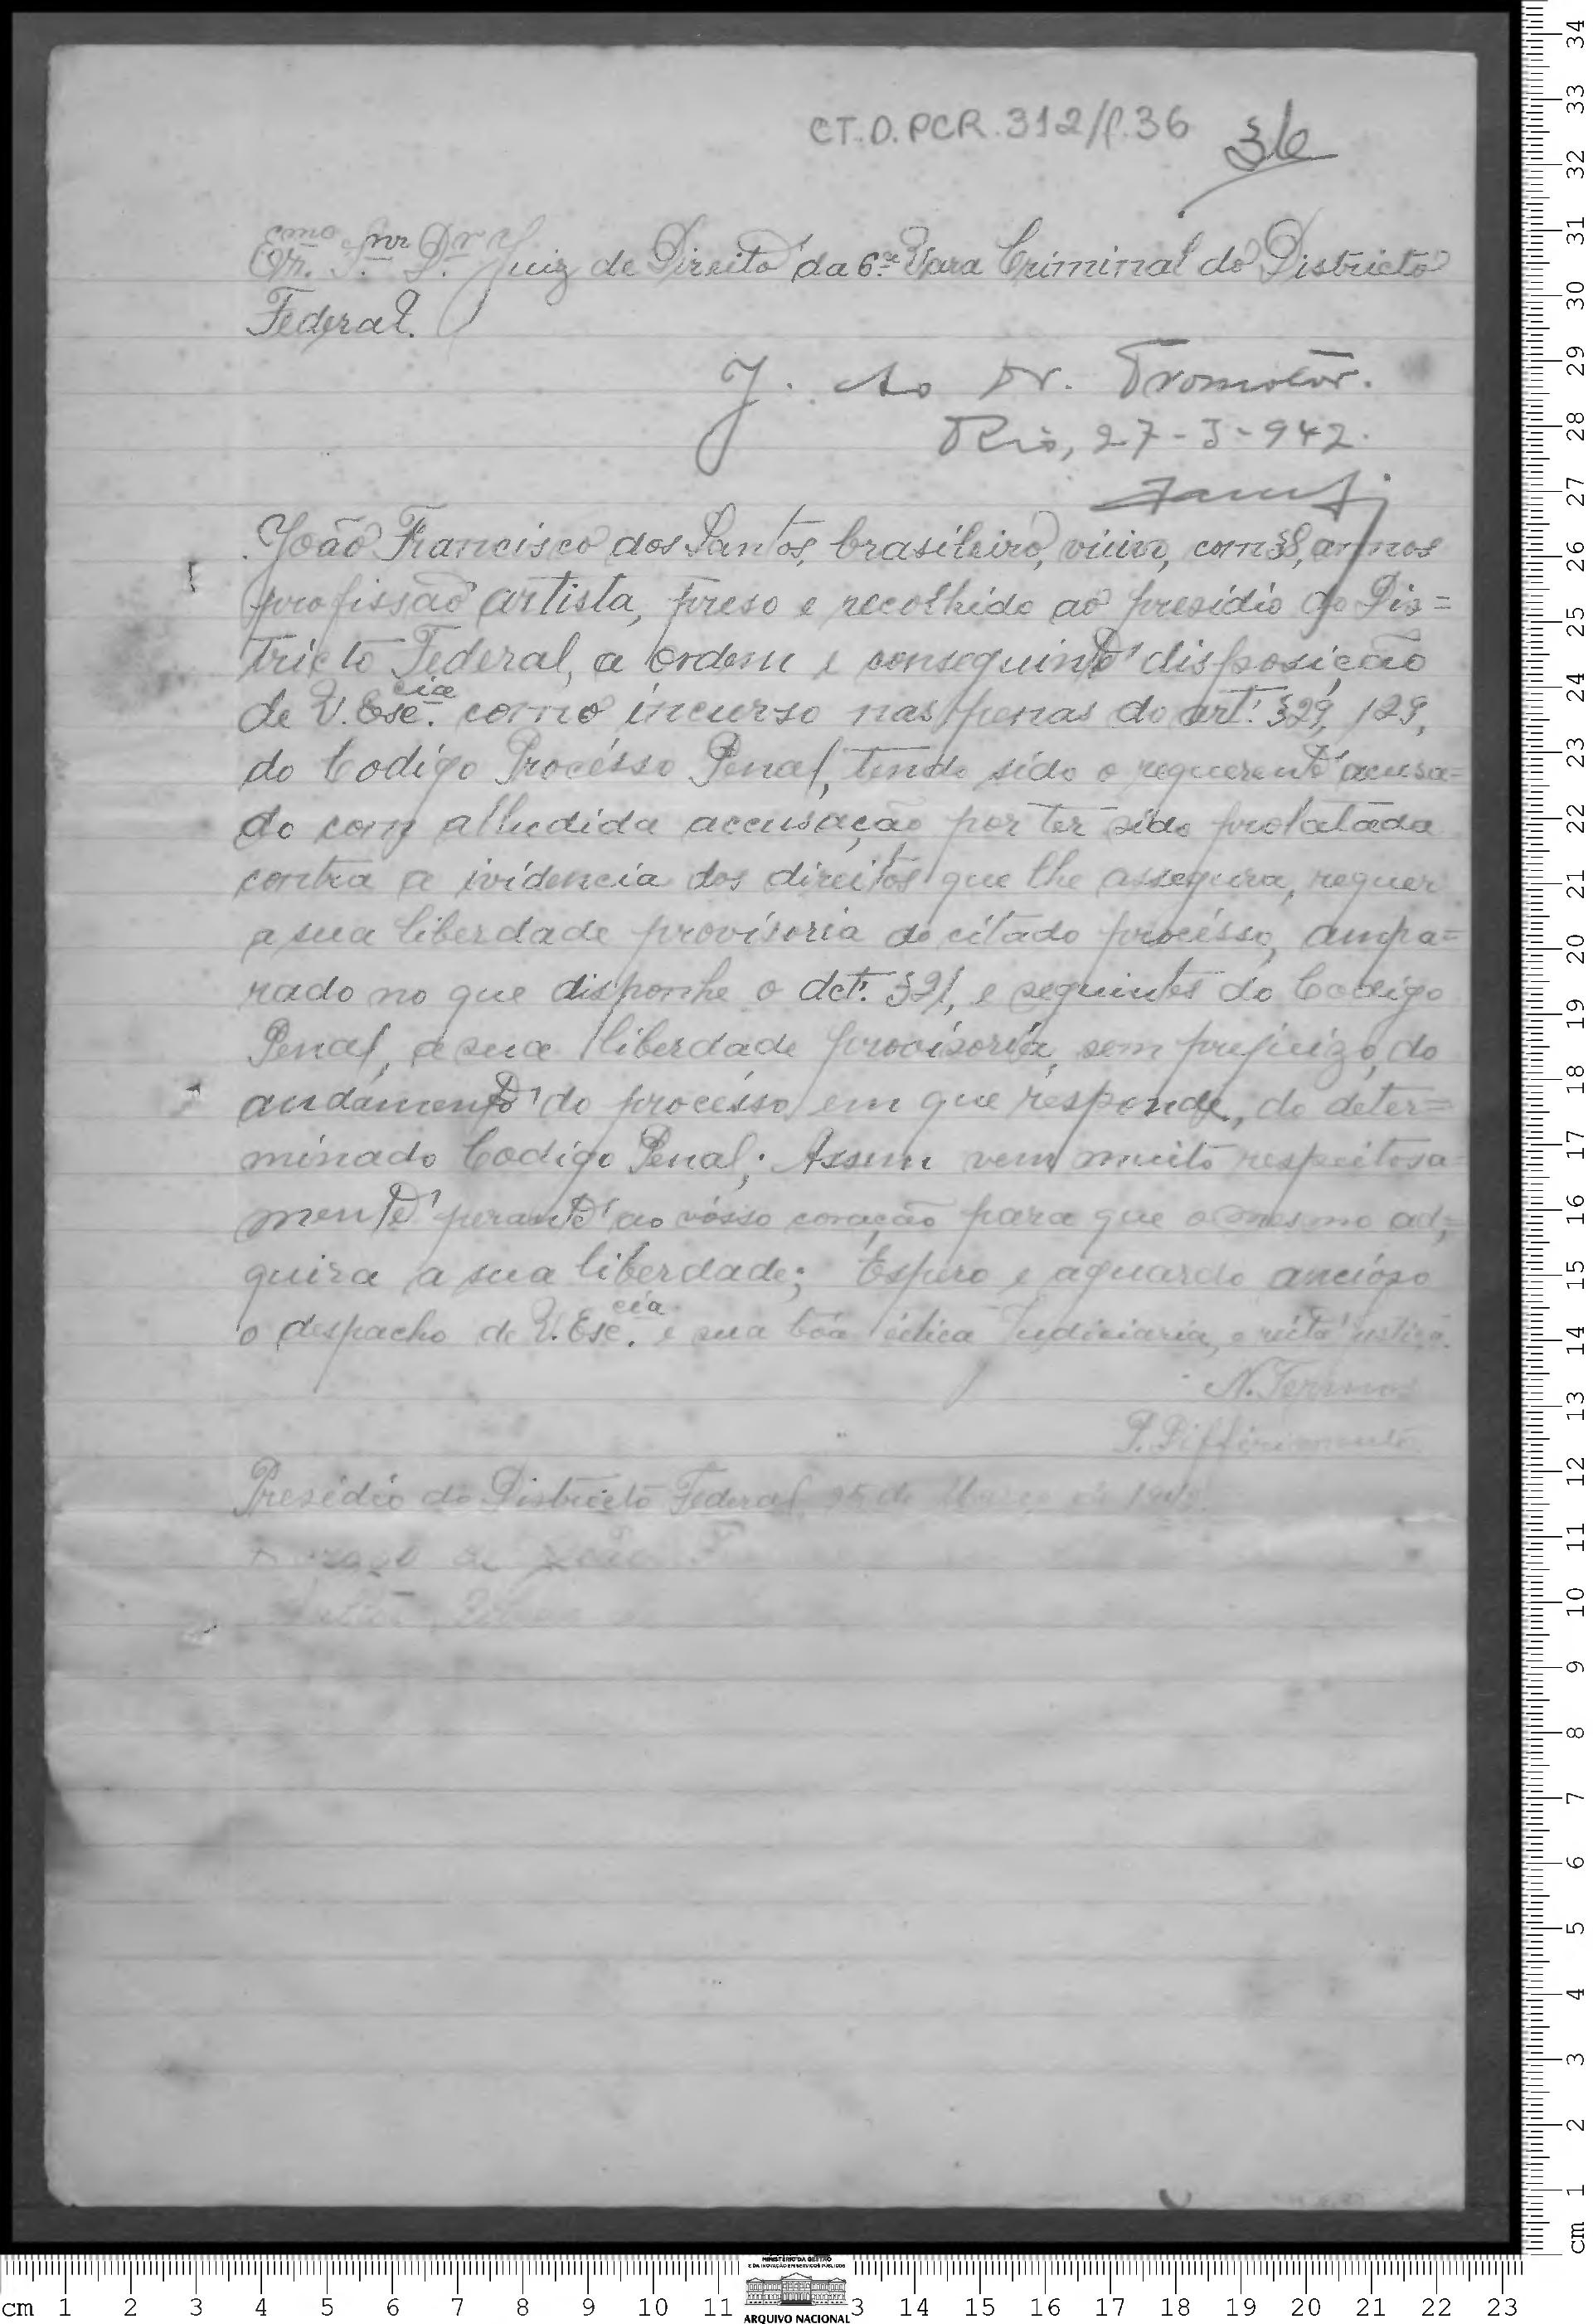 CT.D.PCR.312/f.36
36
Exmo. Snr. Dr. Juiz de Direito da 6ª Vara Criminal do Districto
Federal.
J. Ao Dr. Promotor.
Rio, 27-3-942.
João Francisco dos Santos, brasileiro, com 38, annos
profissão artista, preso e recolhido ao presidio do Dis=
tricto Federal, a ordem e conseguinte disposição
de V. Escia. como incurso nas penas do art. 329, 129,
do Codigo Processo Penal, tendo sido o requerente acusa=
do com alludida accusação por ter sido prolatada
contra a ividencia dos direitos que lhe assegura, requer
a sua liberdade provisoria do citado processo, ampa=
rado no que disponhe o det. 321, e seguintes do Codigo
Penal, a sua liberdade provisoria, sem prejuizo, do
andamento do processo em que responde, do deter=
minado Codigo Penal; Assim vem muito respeitosa=
mente perante ao vósso coração para que o mesmo ad,=
quira a sua liberdade; Espero e aguardo ancióso
o despacho de V. Escia. e sua bôa Judiciaria, e justiça.
N. Termos
P. Differimento
Presidio do Districto Federal, 25 de Março de 1942.
de João F
cm 1 2 3 4 5 6 7 8 9 10 11 3 14 15 16 17 18 19 20 21 22 23
MINISTÉRIO DA GESTÃO
E DA INOVAÇÃO EM SERVIÇOS PÚBLICOS
ARQUIVO NACIONAL
cm 1 2 3 4 5 6 7 8 9 10 11 12 13 14 15 16 17 18 19 20 21 22 23 24 25 26 27 28 29 30 31 32 33 34